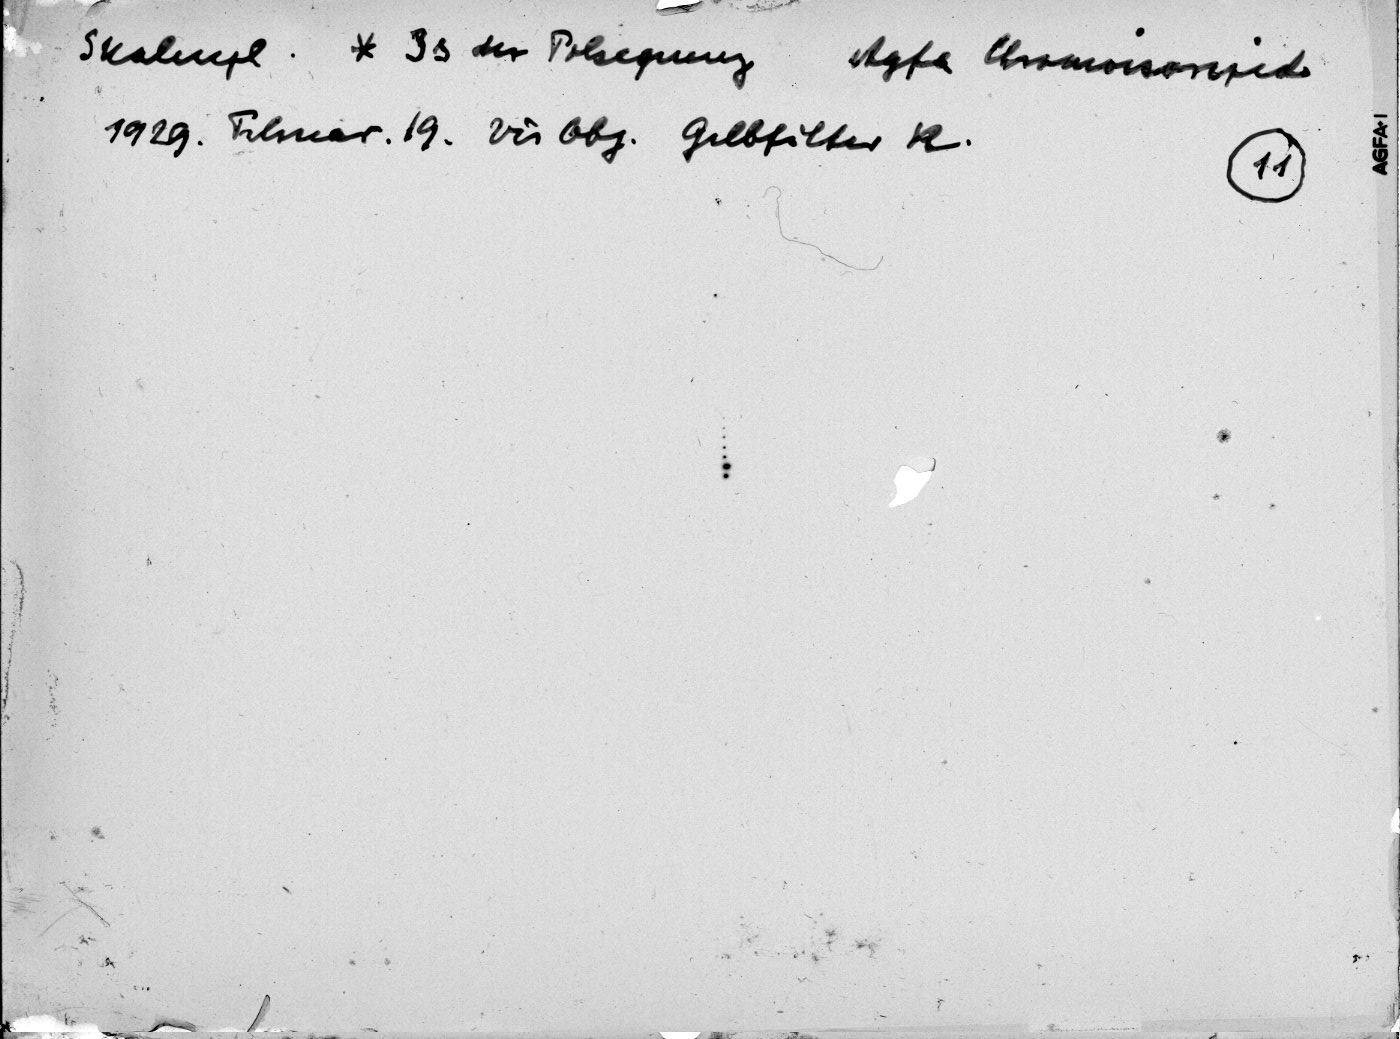 Skalenpl. * 3s der Polsequenz Agfa Chromoisorapid
1929. Februar. 19. Vis Obj. Gelbfilter K.
11
AGFA·I